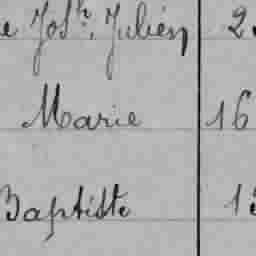 e Josth. Julien 2
Marie 16
Baptiste 1